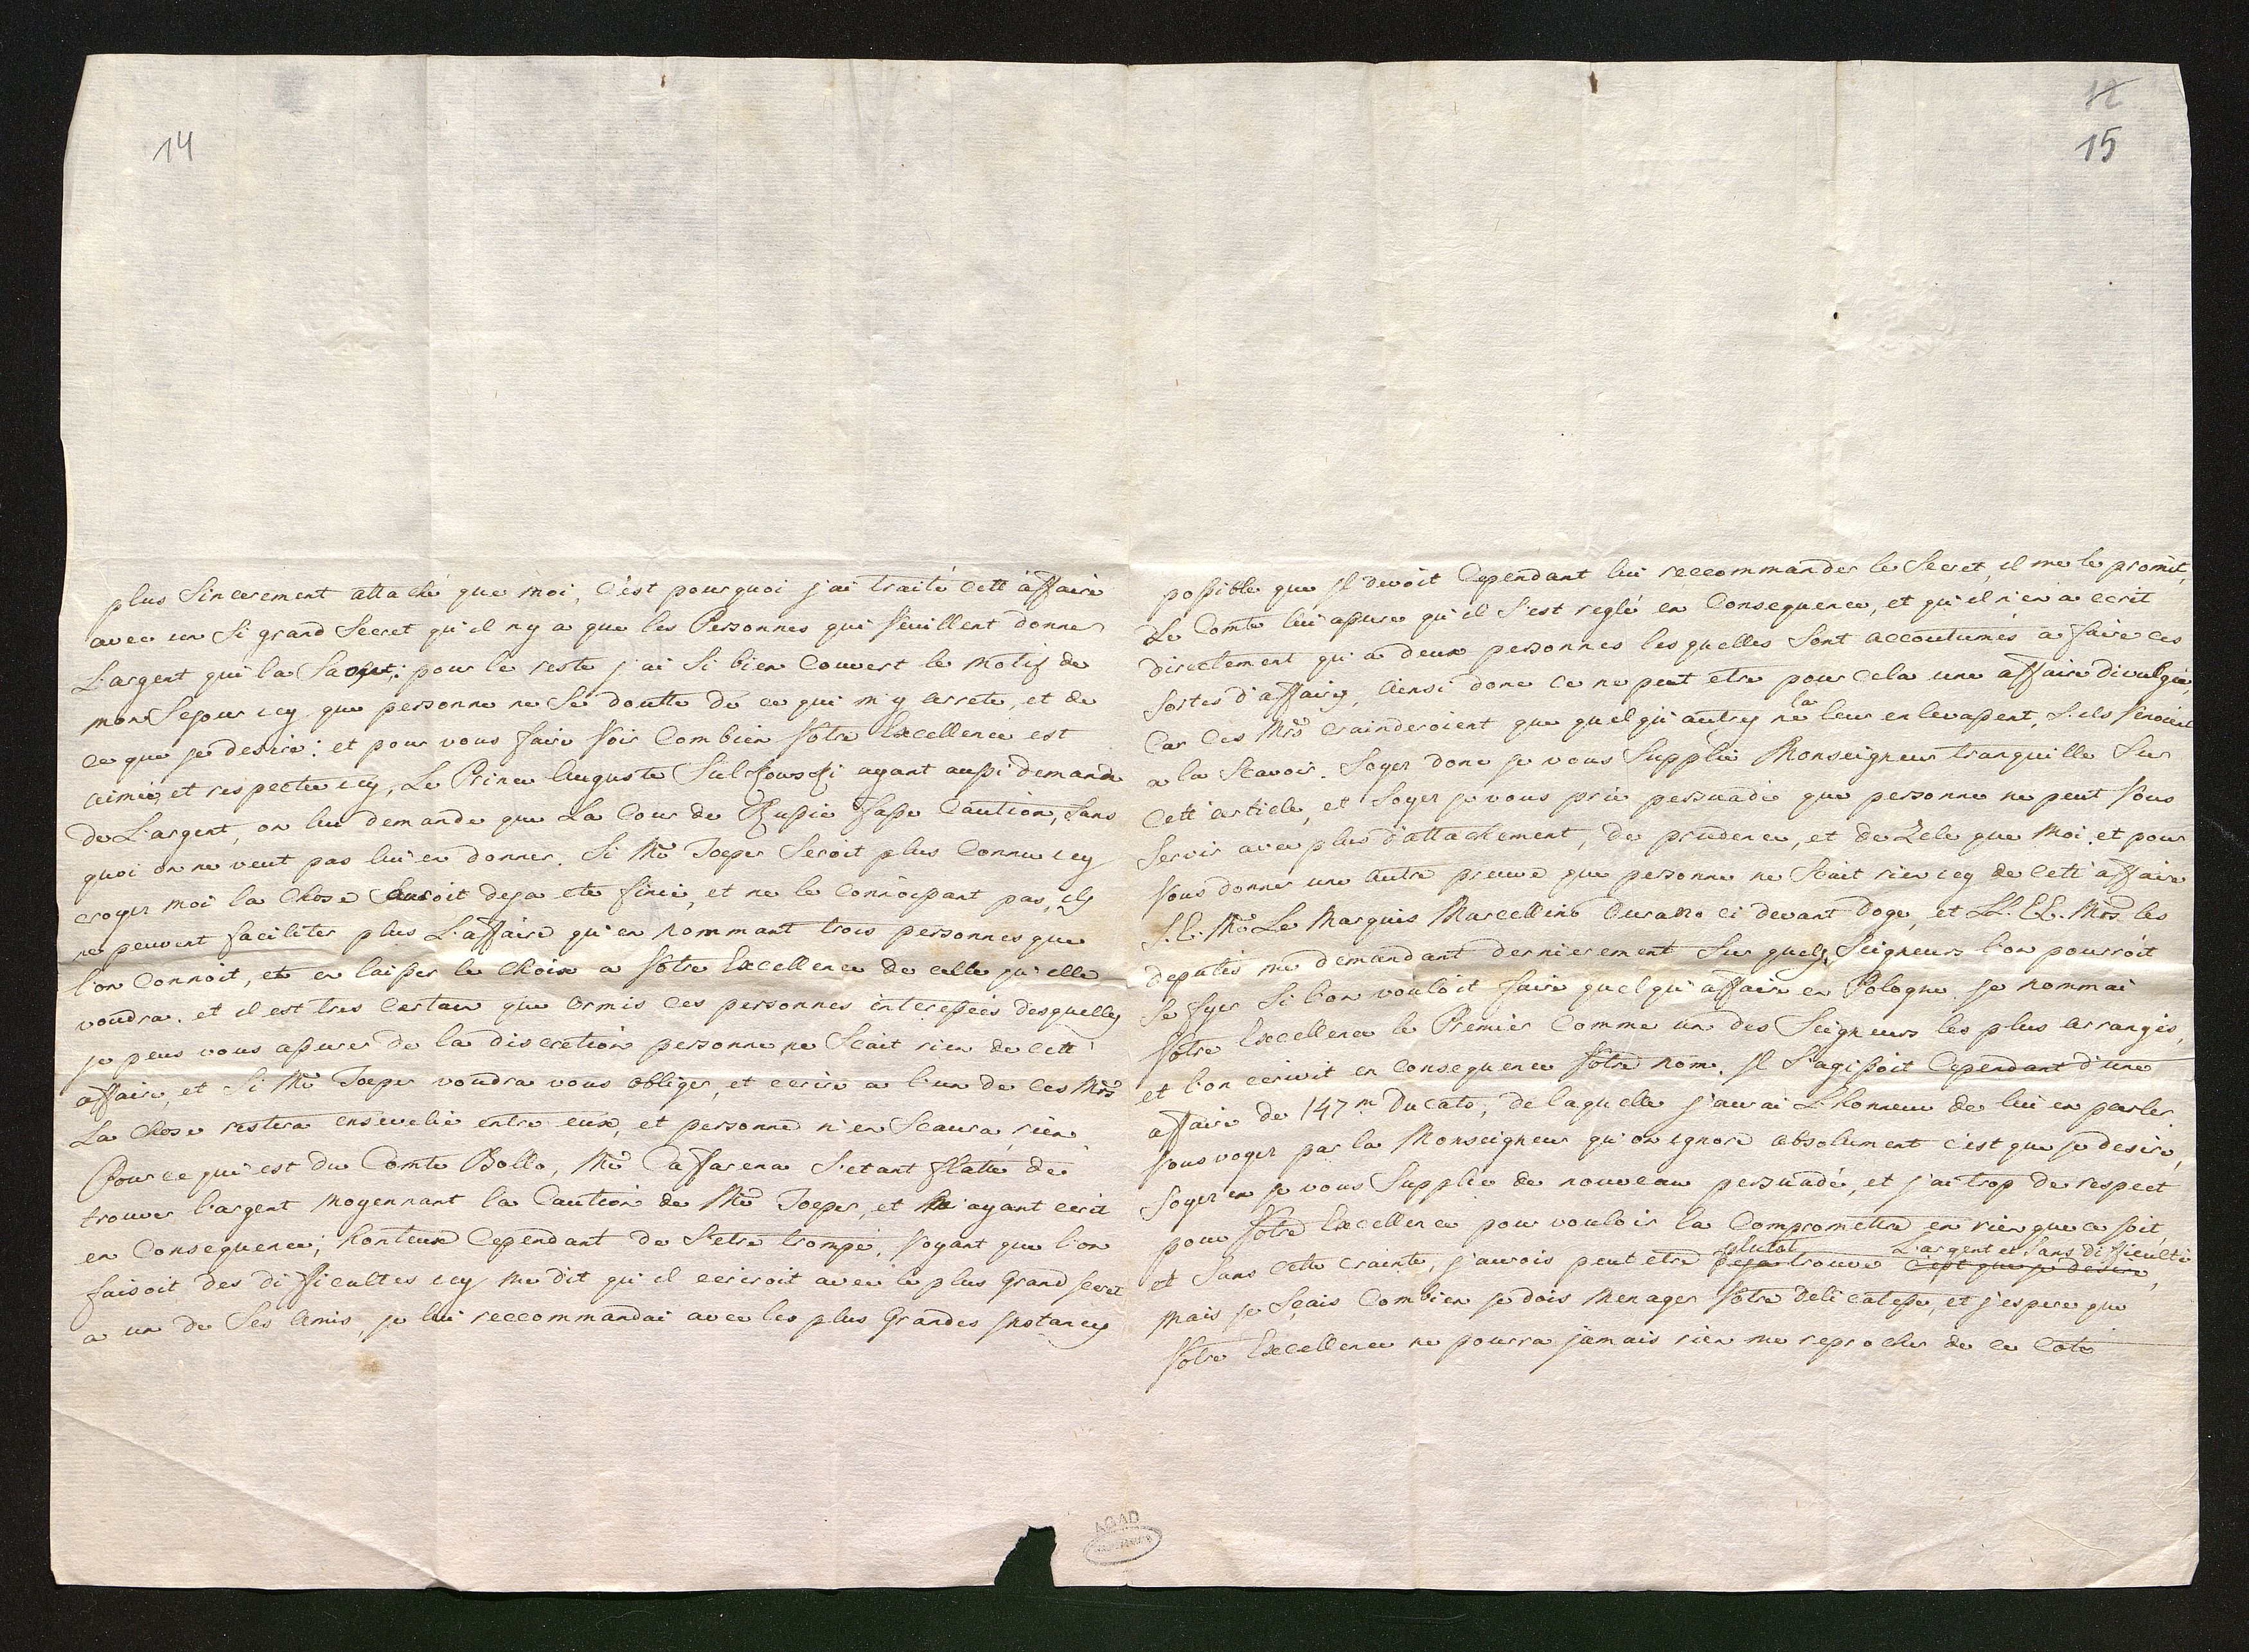 14
plus Sincerement attaché que moi, c'est pourquoi j'ai traité cett'affaire
avec un Si grand Secret qu'il n'y a que les Personnes qui veuillent donner
L'argent qui la Sachent: pour le reste j'ai Si bien Couvert le motif de
mon Sejour icy que personne ne Se doutte de ce qui m'y arrete, et de
ce que je desire: et pour vous faire voir Combien Votre Excellence est
aimée, et respectée icy, Le Prince Auguste Sulkowski ayant aussi demandé
de L'argent, on lui demande que La Cour de Russie fasse Caution, Sans
quoi on ne veut pas lui en donner. Si Mr Toeper Seroit plus Connu icy
croyez moi la Chose Auroit deja eté finie, et ne le Connoissant pas, ils
ne peuvent faciliter plus L'affaire qu'en nommant trois personnes que
l'on Connoit, et en laisser le Choix a Votre Excellence de celle qu'elle
voudra. et il est tres Certain que ormis ces personnes interessées desquelles
je peus vous assurer de la discretion personne ne Scait rien de cett'
affaire, et Si Mr Toeper voudra vous obliger, et ecrire a l'un de ces Mrs
La Chose restera ensevelie entre eux, et personne n'en Scaura rien.
Pour ce qui est du Comte Bollo, Mr Caffarena S'etant flatté de
trouver l'argent moyennant la Caution de Mr Toeper, et ayant ecrit
en Consequence; honteux Cependant de S'etre trompé, voyant que l'on
faisoit des difficultes icy me dit qu'il ecriroit avec le plus Grand Secret
a un de Ses Amis, je lui reccommandai avec les plus Grandes Instances
12
15
possible que Il devoit Cependant lui reccommander le Secret, il me le promit,
Le Comte lui assure qu'il S'est reglé en Consequence, et qu'il n'en a ecrit
directement qu'a deux personnes les quelles Sont accoutumés a faire ces
Sortes d'affaires, ainsi donc ce ne peut etre pour cela une affaire divulgée,
Car Ces Mrs crainderoient que quelqu'autres ne la leur enlevassent, S'ils venoient
a la Scavoir. Soyez donc je vous Supplie Monseigneur tranquille Sur
Cett'article, et Soyez je vous prie persuadé que personne ne peut Vous
Servir avec plus d'attachement, de prudence, et de Zele que Moi. et pour
Vous donner une autre preuve que personne ne Scait rien icy de Cett'affaire
S.E. Mr Le Marquis Marcellino Durazzo ci devant Doge, et LL.EE. Mrs les
deputés me demandant dernierement Sur quels Seigneurs l'on pourroit
Se fyer Si l'on vouloit faire quelqu'affaire en Pologne, je nommai
Votre Excellence le Premier Comme un des Seigneurs les plus arrangés,
et l'on ecrivit en consequence Votre nom. Il S'agissoit Cependant d'une
affaire de 147m Ducats, de laquelle j'aurai L'honneur de lui en parler.
Vous voyez par la Monseigneur qu'on ignore absolument c'est que je desire,
Soyez en je vous Supplie de nouveau persuadé, et j'ai trop de respect
pour Votre Excellence pour vouloir la Compromettre en rien que ce soit,
et Sans cette crainte, j'aurois peut etre deja plutot trouvé c'est que je desire L'argent et Sans difficulté,
mais je Sçais Combien je dois menager Votre Delicatesse, et j'espere que
Votre Excellence ne pourra jamais rien me reprocher de ce Coté
AGAD